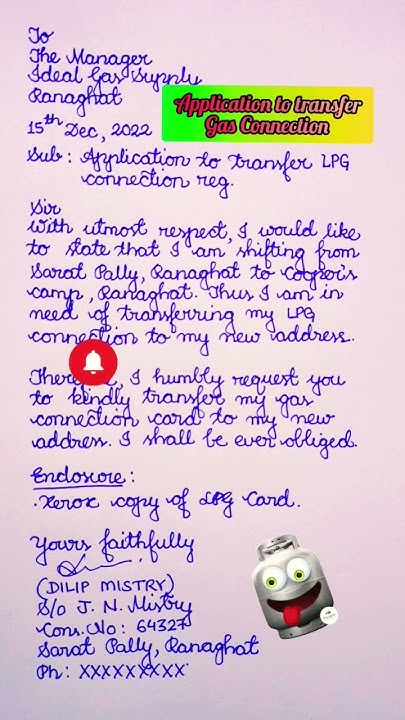 To
The Manager
Ideal Gas Supply
Ranaghat
Application to transfer
Gas Connection
15th Dec, 2022
Sub: Application to transfer LPG
connection reg.
Sir
With utmost respect, I would like
to state that I am shifting from
Sarat Pally, Ranaghat to Cooper's
camp, Ranaghat. Thus I am in
need of transferring my LPG
connection to my new address.
I humbly request you
to kindly transfer my gas
connection card to my new
address. I shall be ever obliged.
Enclosure:
·Xerox copy of LPG Card.
Yours faithfully
(DILIP MISTRY)
S/o J. N. Mistry
Cons. No: 64327
Sarat Pally, Ranaghat
Ph: XXXXXXXXX